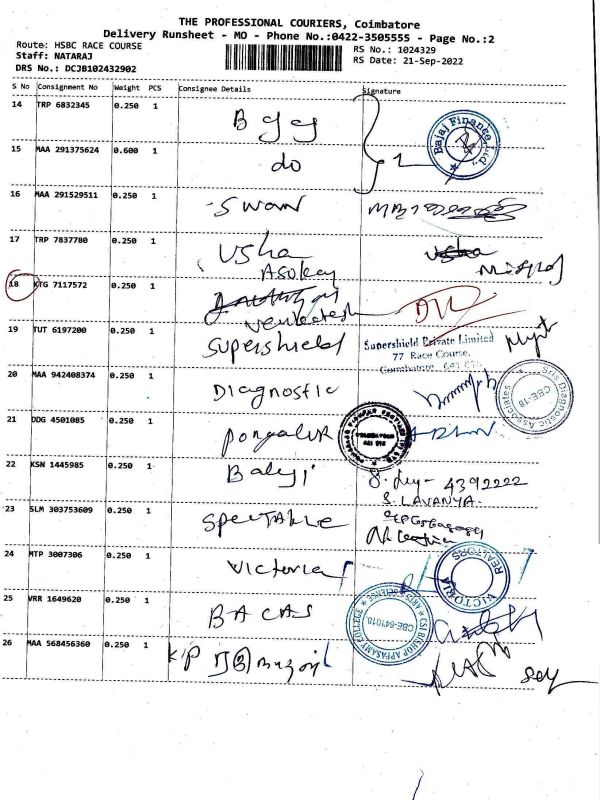 THE PROFESSIONAL COURIERS, Coimbatore
Delivery Runsheet - MO - Phone No.:0422-3505555 - Page No.:2
Route: HSBC RACE COURSE
RS No.: 1024329
Staff: NATARAJ
RS Date: 21-Sep-2022
DRS No.: DCJB102432902
S No Consignment No Weight PCS Consignee Details Signature
14 TRP 6832345 0.250 1
Bajaj Finance Ltd.
15 MAA 291375624 0.600 1 do
16 MAA 291529511 0.250 1 Swan
17 TRP 7837780 0.250 1 Usha Usha
Asokan
18 KTG 7117572 0.250 1
Venkatesh
19 TUT 6197200 0.250 1 Supershield Supershield Private Limited
77 Race Course,
Coimbatore
20 MAA 942408374 0.250 1 Diagnostic Sris Diagnostic Associates CBE-18
21 DDG 4501085 0.250 1 Pongalur
22 KSN 1445985 0.250 1 Balaji 4392222
S. LAVANYA
23 SLM 303753609 0.250 1
24 MTP 3007306 0.250 1 Victoria VICTORIA REALTORS
25 VRR 1649620 0.250 1 BACAS CSI BISHOP APPASAMY COLLEGE CBE-641018
26 MAA 568456360 0.250 1